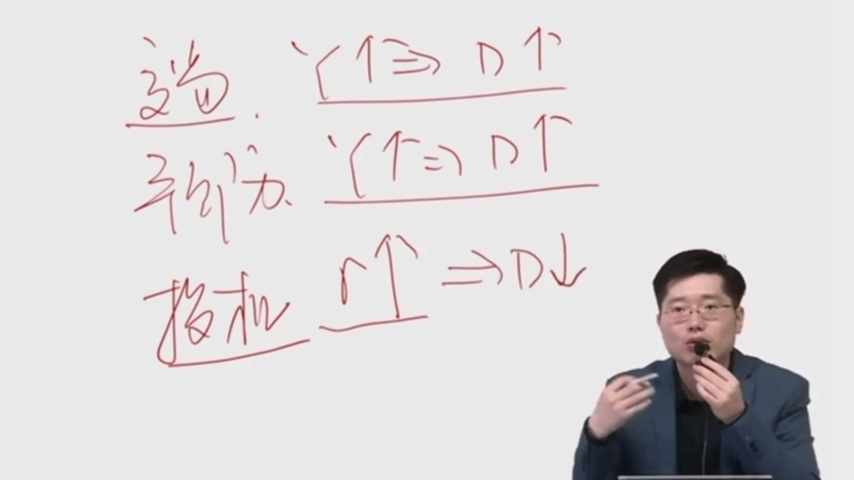 交易. Y↑⇒D↑
预防. Y↑⇒D↑
投机 r↑⇒D↓